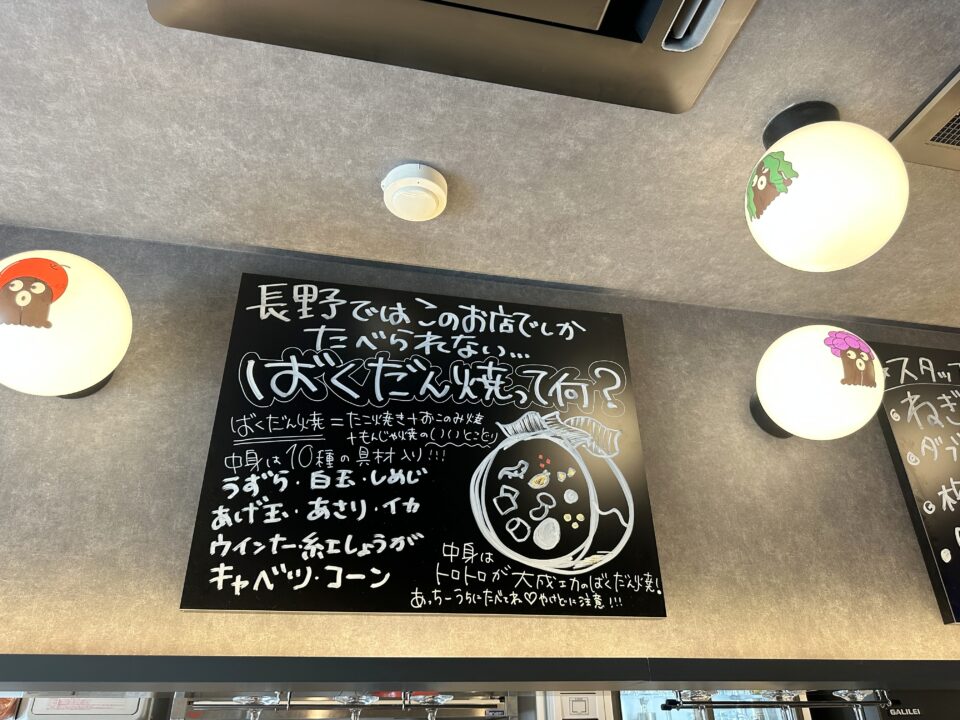 長野ではこのお店でしか
たべられない…
ばくだん焼って何?
ばくだん焼=たこ焼き+おこのみ焼
+もんじゃ焼のいいとこどり
中身は10種の具材入り!!!
うずら・白玉・しめじ
あげ玉・あさり・イカ
ウインナー・紅しょうが
キャベツ・コーン
中身は
トロトロが大成功のばくだん焼!
あっちーうちにたべてね♡やけどに注意!!!
スタッフ
ねぎ
GALILEI